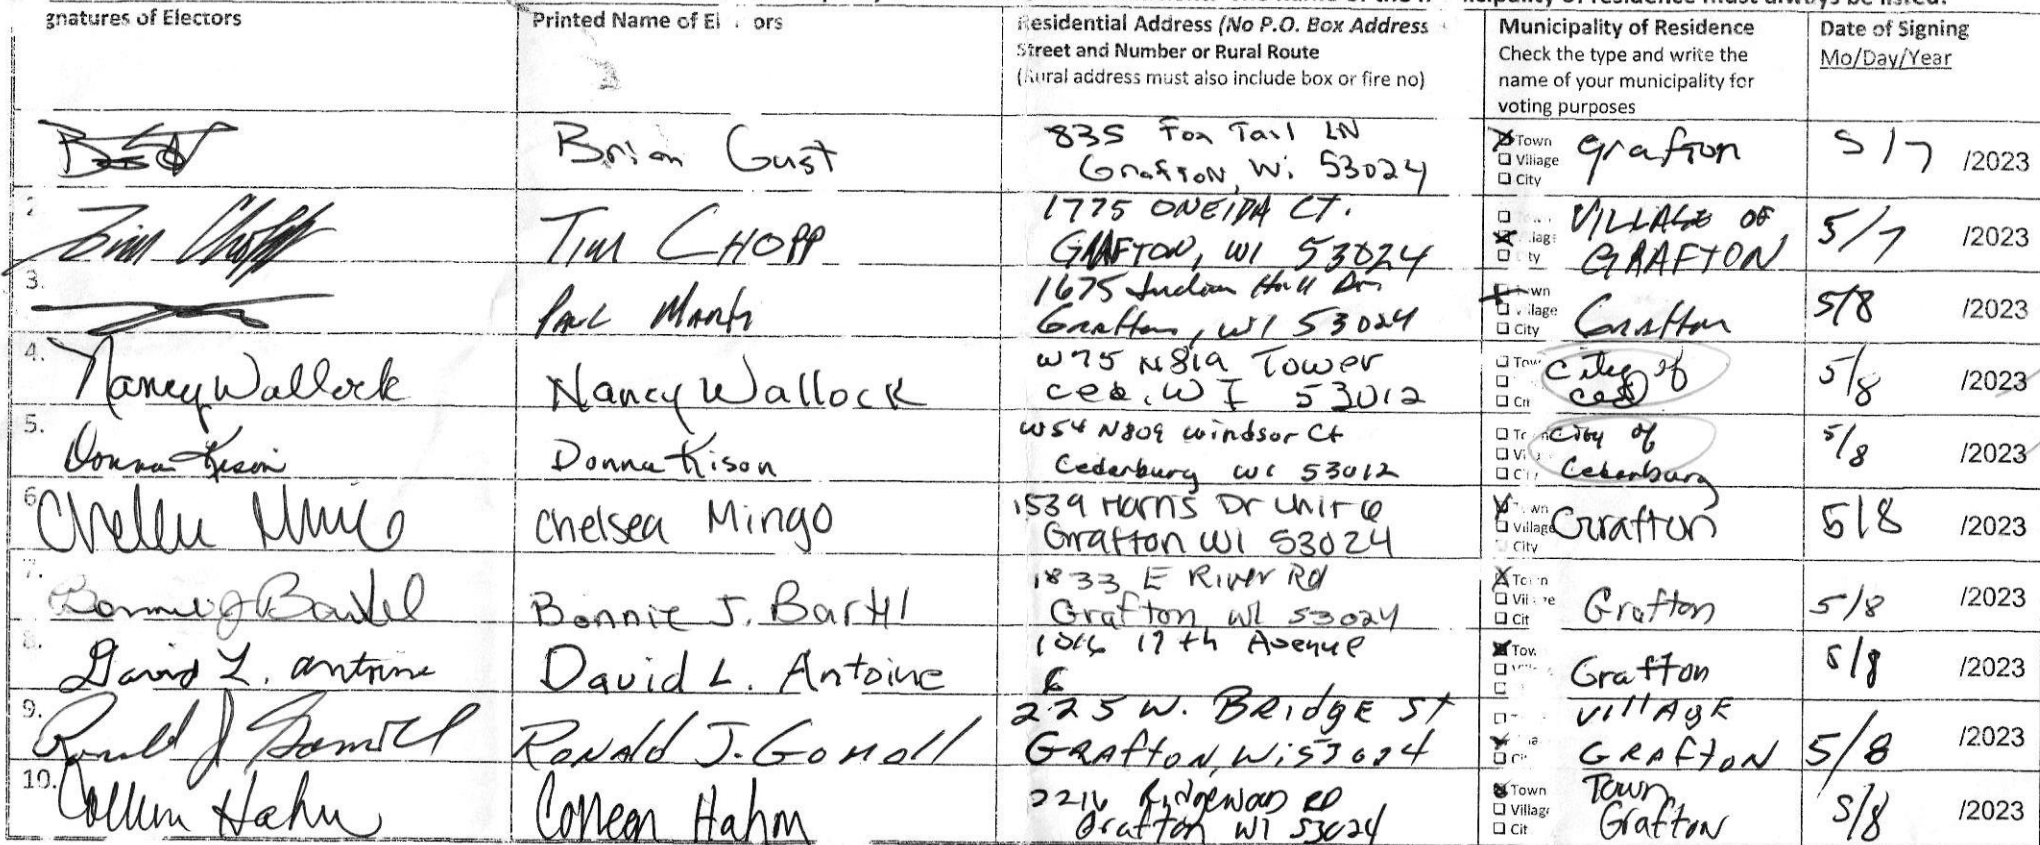 gnatures of Electors
Printed Name of El ors
Residential Address (No P.O. Box Address
Street and Number or Rural Route
(Rural address must also include box or fire no)
Municipality of Residence
Check the type and write the
name of your municipality for
voting purposes
Date of Signing
Mo/Day/Year
Brian Gust
835 Fox Tail LN
Grafton, Wi 53024
Town
Village
City
Grafton
5/7 /2023
Tim Chopp
TIM CHOPP
1775 ONEIDA CT.
GRAFTON, WI 53024
VILLAGE OF
GRAFTON
5/7 /2023
3.
PAUL
1675 Indian Hill Dr.
Grafton, WI 53024
Village
City
Grafton
5/8 /2023
4.
Nancy Wallock
Nancy Wallock
W75 N819 Tower
ced. WI 53012
City of
ced
5/8 /2023
5.
Donna Kison
Donna Kison
W54 N809 Windsor Ct
Cederburg WI 53012
City of
Cederburg
5/8 /2023
6.
Chelsea Mingo
1539 Harris Dr Unit 6
Grafton WI 53024
Village
City
Grafton
5/8 /2023
7.
Bonnie J Bartel
Bonnie J. Bartel
1833 E River Rd
Grafton, WI 53024
Grafton
5/8 /2023
8.
David L. Antoine
David L. Antoine
17th Avenue
Grafton
5/8 /2023
9.
Ronald J. Gomoll
225 W. Bridge St
GRAFTON, Wi 53024
Village
GRAFTON
5/8 /2023
10.
Colleen Hahm
Colleen Hahm
2216 Ridgewood RD
Grafton WI 53024
Town
Village
Cit
Town
Grafton
5/8 /2023